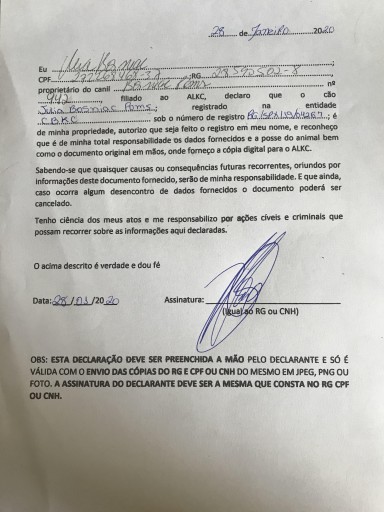 28 de Janeiro 2020
Eu
CPF RG
proprietário do canil Bosniac Poms nº
442, filiado ao ALKC, declaro que o cão
Julia Bosniac Poms; registrado na entidade
C.B.K.C. sob o número de registro é
de minha propriedade, autorizo que seja feito o registro em meu nome, e reconheço
que é de minha total responsabilidade os dados fornecidos e a posse do animal bem
como o documento original em mãos, onde forneço a cópia digital para o ALKC.
Sabendo-se que quaisquer causas ou consequências futuras recorrentes, oriundos por
informações deste documento fornecido, serão de minha responsabilidade. E que ainda,
caso ocorra algum desencontro de dados fornecidos o documento poderá ser
cancelado.
Tenho ciência dos meus atos e me responsabilizo por ações cíveis e criminais que
possam recorrer sobre as informações aqui declaradas.
O acima descrito é verdade e dou fé
Data: 28/01/2020 Assinatura:
(Igual ao RG ou CNH)
OBS: ESTA DECLARAÇÃO DEVE SER PREENCHIDA A MÃO PELO DECLARANTE E SÓ É
VÁLIDA COM O ENVIO DAS CÓPIAS DO RG E CPF OU CNH DO MESMO EM JPEG, PNG OU
FOTO. A ASSINATURA DO DECLARANTE DEVE SER A MESMA QUE CONSTA NO RG CPF
OU CNH.